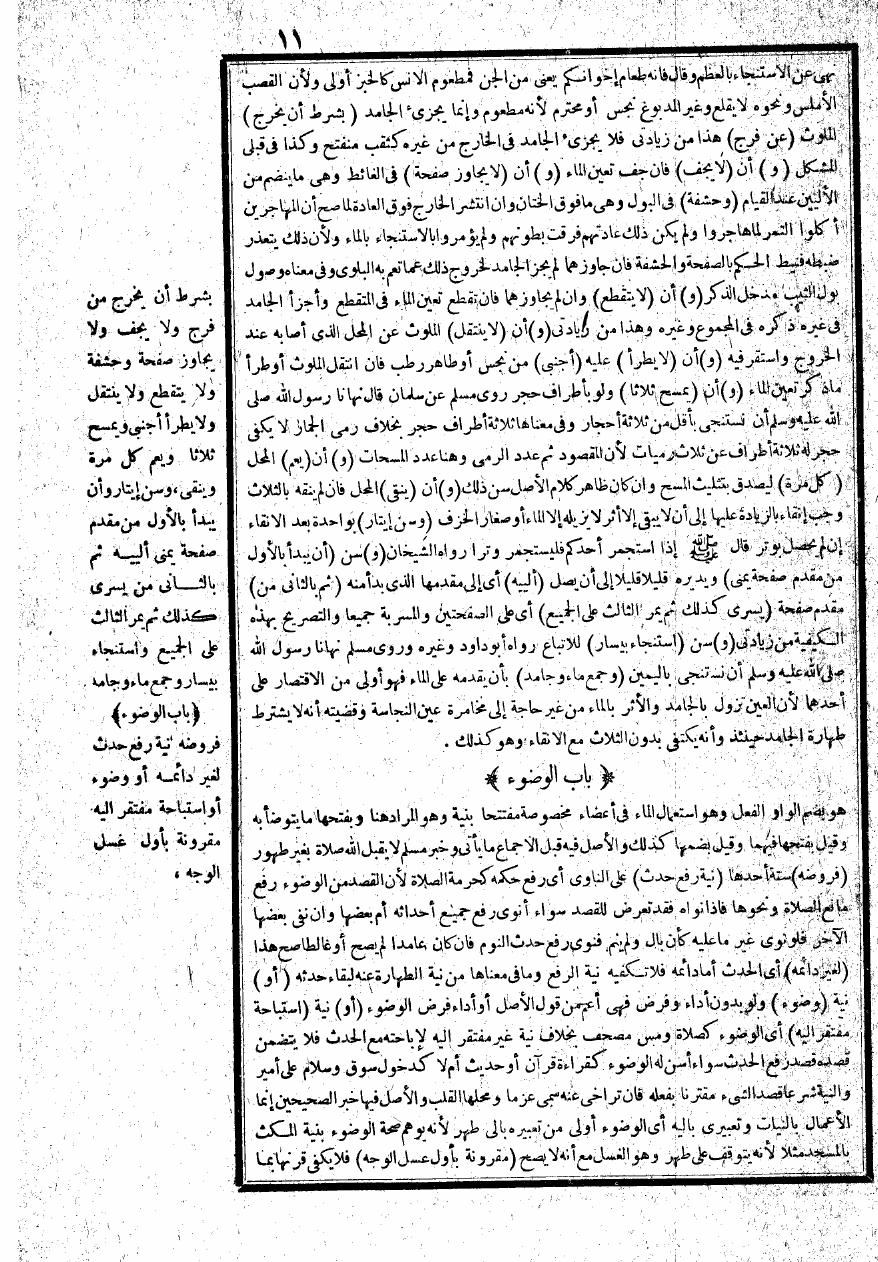 ١١
نهى عن الاستنجاء بالعظم وقال فانه طعام إخوانكم يعنى من الجن فمطعوم الانس كالخبز أولى ولأن القصب
الأملس ونحوه لايقلع وغير المدبوغ نجس أومحترم لأنه مطعوم وإنما يجزىء الجامد (بشرط أن يخرج)
الملوث (عن فرج) هذا من زيادتى فلا يجزىء الجامد فى الخارج من غيره كثقب منفتح وكذا فى قبلى
المشكل (و) أن (لايجف) فان جف تعين الماء (و) أن (لايجاوز صفحة) فى الغائط وهى ماينضم من
الأليين عند القيام (وحشفة) فى البول وهى مافوق الختان وان انتشر الخارج فوق العادة لماصح أن المهاجرين
أكلوا التمر لماهاجروا ولم يكن ذلك عادتهم فرقت بطونهم ولم يؤمروا بالاستنجاء بالماء ولأن ذلك يتعذر
ضبطه فنيط الحكم بالصفحة والحشفة فان جاوزهما لم يجز الجامد لخروج ذلك عما تعم به البلوى وفى معناه وصول
بول الثيب مدخل الذكر (و) أن (لايتقطع) وان لم يجاوزهما فان تقطع تعين الماء فى المتقطع وأجزأ الجامد
فى غيره ذكره فى المجموع وغيره وهذا من زيادتى (و) أن (لاينتقل) الملوث عن المحل الذى أصابه عند
الخروج واستقر فيه (و) أن (لايطرأ) عليه (أجنبى) من نجس أوطاهر رطب فان انتقل الملوث أوطرأ
ماذكر تعين الماء (و) أن (يمسح ثلاثا) ولو بأطراف حجر روى مسلم عن سلمان قال نهانا رسول الله صلى
الله عليه وسلم أن نستنجى بأقل من ثلاثة أحجار وفى معناها ثلاثة أطراف حجر بخلاف رمى الجمار لا يكفى
حجر له ثلاثة أطراف عن ثلاث رميات لأن المقصود ثم عدد الرمى وهنا عدد المسحات (و) أن (يعم) المحل
(كل مرة) ليصدق بتثليث المسح وان كان ظاهر كلام الأصل سن ذلك (و) أن (ينقى) المحل فان لم ينقه بالثلاث
وجب إنقاء بالزيادة عليها إلى أن لا يبقى إلا أثر لا يزيله إلا الماء أوصغار الخزف (وسن إيتار) بواحدة بعد الانقاء
إن لم يحصل بوتر قال ﷺ إذا استجمر أحدكم فليستجمر وترا رواه الشيخان (و) سن (أن يبدأ بالأول
من مقدم صفحة يمنى) ويديره قليلا قليلا إلى أن يصل (أليه) أى إلى مقدمها الذى بدأ منه (ثم بالثانى من)
مقدم صفحة (يسرى كذلك ثم يمر الثالث على الجميع) أى على الصفحتين والمسربة جميعا والتصريح بهذه
الكيفية من زيادتى (و) سن (استنجاء بيسار) للاتباع رواه أبو داود وغيره وروى مسلم نهانا رسول الله
صلى الله عليه وسلم أن نستنجى باليمين (وجمع ماء وجامد) بأن يقدمه على الماء فهو أولى من الاقتصار على
أحدهما لأن العين تزول بالجامد والأثر بالماء من غير حاجة إلى مخامرة عين النجاسة وقضيته أنه لا يشترط
طهارة الجامد حينئذ وأنه يكتفى بدون الثلاث مع الانقاء وهو كذلك .
﴿ باب الوضوء ﴾
هو بضم الواو الفعل وهو استعمال الماء فى أعضاء مخصوصة مفتتحا بنية وهو المراد هنا وبفتحها ما يتوضأ به
وقيل بفتحها فيهما وقيل بضمها كذلك والأصل فيه قبل الاجماع ما يأتى وخبر مسلم لا يقبل الله صلاة بغير طهور
(فروضه) ستة أحدها (نية رفع حدث) على الناوى أى رفع حكمه كحرمة الصلاة لأن القصد من الوضوء رفع
مانع الصلاة ونحوها فاذا نواه فقد تعرض للقصد سواء أنوى رفع جميع أحداثه أم بعضها وان نفى بعضها
الآخر فلو نوى غير ما عليه كأن بال ولم ينم فنوى رفع حدث النوم فان كان عامدا لم يصح أو غالطا صح هذا
(لغير دائمه) أى الحدث أما دائمه فلا تكفيه نية الرفع وما فى معناها من نية الطهارة عنه لبقاء حدثه (أو)
نية (وضوء) ولو بدون أداء وفرض فهى أعم من قول الأصل أو أداء فرض الوضوء (أو) نية (استباحة
مفتقر اليه) أى الوضوء كصلاة ومس مصحف بخلاف نية غير مفتقر اليه لإباحته مع الحدث فلا يتضمن
قصده قصد رفع الحدث سواء أسن له الوضوء كقراءة قرآن أو حديث أم لا كدخول سوق وسلام على أمير
والنية شرعا قصد الشىء مقترنا بفعله فان تراخى عنه سمى عزما ومحلها القلب والأصل فيها خبر الصحيحين إنما
الأعمال بالنيات وتعبيرى باليه أى الوضوء أولى من تعبيره بالى طهر لأنه يوهم صحة الوضوء بنية المكث
بالمسجد مثلا لأنه يتوقف على طهر وهو الغسل مع أنه لا يصح (مقرونة بأول غسل الوجه) فلا يكفى قرنها بما
بشرط أن يخرج من
فرج ولا يجف ولا
يجاوز صفحة وحشفة
ولا يتقطع ولا ينتقل
ولا يطرأ أجنبى ويمسح
ثلاثا ويعم كل مرة
وينقى ، وسن إيتار وأن
يبدأ بالأول من مقدم
صفحة يمنى أليه ثم
بالثانى من يسرى
كذلك ثم يمر الثالث
على الجميع واستنجاء
بيسار وجمع ماء وجامد
﴿باب الوضوء﴾
فروضه نية رفع حدث
لغير دائمه أو وضوء
أو استباحة مفتقر اليه
مقرونة بأول غسل
الوجه ،